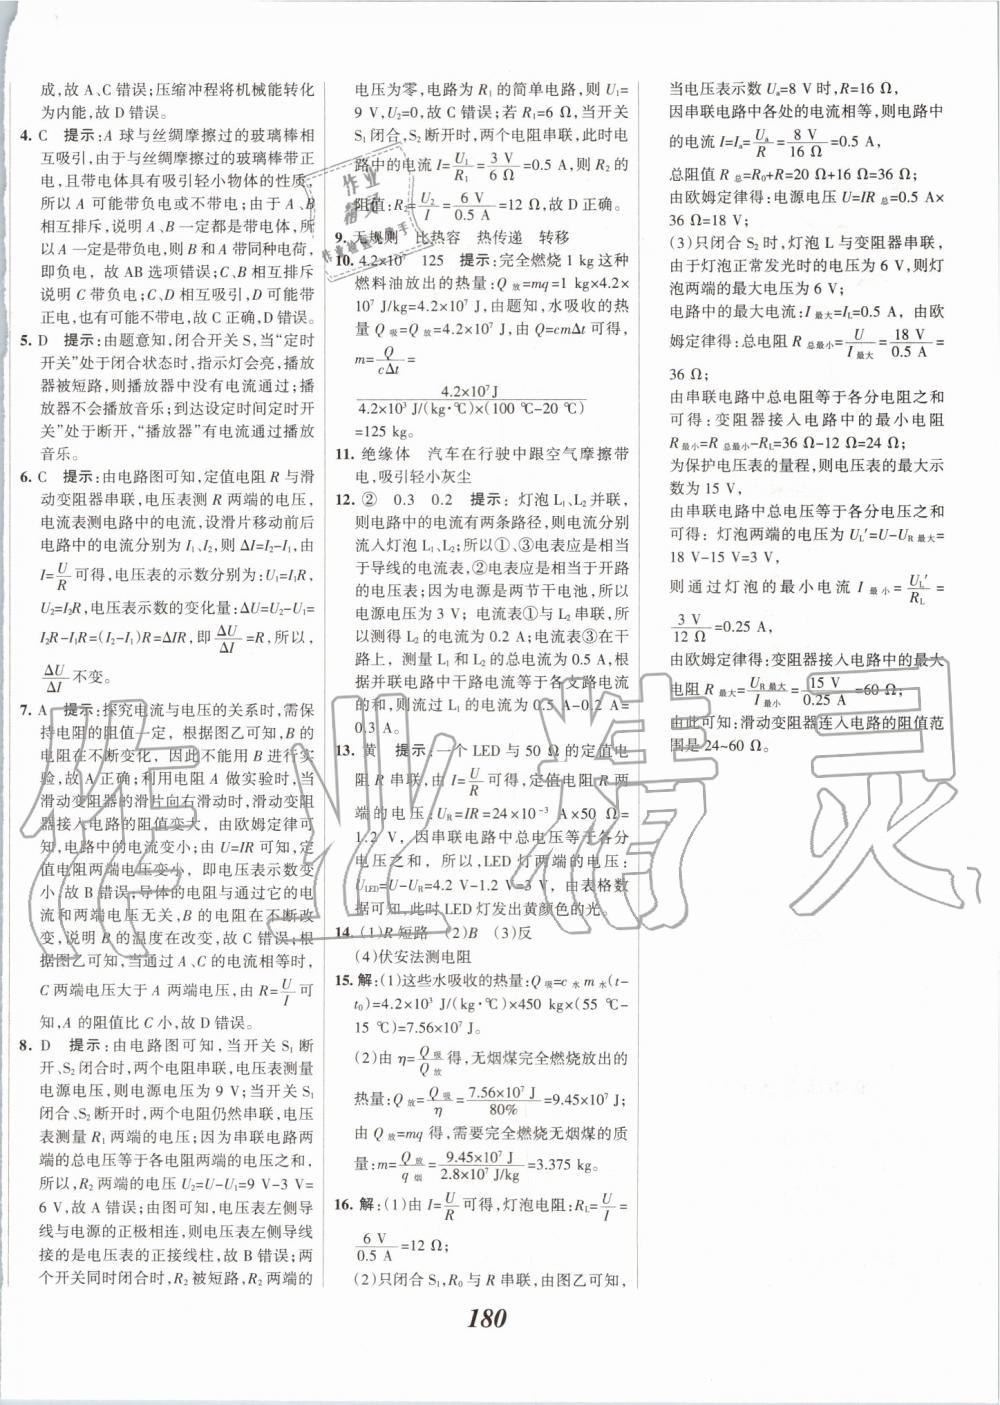 成,故A、C错误;压缩冲程将机械能转化
为内能,故D错误。
4. C 提示:A球与丝绸摩擦过的玻璃棒相
互吸引,由于与丝绸摩擦过的玻璃棒带正
电,且带电体具有吸引轻小物体的性质,
所以A可能带负电或不带电;由于A、B
相互排斥,说明A、B一定带电,
所以A一定是带负电,则B和A带同种电荷,
即负电,故AB选项错误;C、B相互排斥
说明C带负电;C、D相互吸引,D可能带
正电,也有可能不带电,故C正确,D错误。
5. D 提示:由题意知,闭合开关S,当“定时
开关”处于闭合状态时,指示灯会亮,播放
器被短路,则播放器中没有电流通过,播
放器不会播放音乐;到达设定时间定时开
关处于断开,“播放器”有电流通过播放
音乐。
6. C 提示:由电路图可知,定值电阻R与滑
动变阻器串联,电压表测R两端的电压,
电流表测电路中的电流,设滑片移动前后
电路中的电流分别为I₁、I₂,则ΔI=I₂-I₁,由
I=U/R可得,电压表的示数分别为:U₁=I₁R,
U₂=I₂R,电压表示数的变化量:ΔU=U₂-U₁=
I₂R-I₁R=(I₂-I₁)R=ΔIR,即ΔU/ΔI=R,所以,
ΔU/ΔI不变。
7. A 提示:探究电流与电压的关系时,需保
持电阻的阻值一定,根据图乙可知,B的
电阻在不断变化,因此不能用B进行实
验,故A正确;利用电阻A做实验时,当
滑动变阻器的滑片向右滑动时,滑动变阻
器接入电路的阻值变大,由欧姆定律可
知,电路中的电流变小;由U=IR可知,定
值电阻两端电压变小,即电压表示数变
小,故B错误;导体的电阻与通过它的电
流和两端电压无关,B的电阻在不断改
变,说明B的温度在改变,故C错误;根
据图乙可知,当通过A、C的电流相等时,
C两端电压大于A两端电压,由R=U/I可
知,A的阻值比C小,故D错误。
8. D 提示:由电路图可知,当开关S₁断
开、S₂闭合时,两个电阻串联,电压表测量
电源电压,则电源电压为9 V;当开关S₁
闭合、S₂断开时,两个电阻仍然串联,电压
表测量R₁两端的电压;因为串联电路两
端的总电压等于各电阻两端的电压之和,
所以,R₂两端的电压U₂=U-U₁=9 V-3 V=
6 V,故A错误;由图可知,电压表左侧导
线与电源的正极相连,则电压表左侧导线
接的是电压表的正接线柱,故B错误;两
个开关同时闭合时,R₂被短路,R₂两端的
电压为零,电路为R₁的简单电路,则U₁=
9 V,U₂=0,故C错误;若R₁=6 Ω,当开关
S₁闭合、S₂断开时,两个电阻串联,此时电
路中的电流I=U₁/R₁=3 V/6 Ω=0.5 A,则R₂的
阻值:R₂=U₂/I=6 V/0.5 A=12 Ω,故D正确。
9. 无规则 比热容 热传递 转移
10. 4.2×10⁷ 125 提示:完全燃烧1 kg这种
燃料油放出的热量:Q放=mq=1 kg×4.2×
10⁷ J/kg=4.2×10⁷ J,由题知,水吸收的热
量Q吸=Q放=4.2×10⁷ J,由Q=cmΔt可得,
m=Q/cΔt=
4.2×10⁷J/4.2×10³ J/(kg·℃)×(100 ℃-20 ℃)
=125 kg。
11. 绝缘体 汽车在行驶中跟空气摩擦带
电,吸引轻小灰尘
12. ② 0.3 0.2 提示:灯泡L₁、L₂并联,
则电路中的电流有两条路径,则电流分别
流入灯泡L₁、L₂;所以①、③电表应是相当
于导线的电流表,②电表应是相当于开路
的电压表;因为电源是两节干电池,所以
电源电压为3 V;电流表①与L₂串联,所
以测得L₂的电流为0.2 A;电流表③在干
路上,测量L₁和L₂的总电流为0.5 A,根
据并联电路中干路电流等于各支路电流
的和,则流过L₁的电流为0.5 A-0.2 A=
0.3 A。
13. 黄 提示:一个LED与50 Ω的定值电
阻R串联,由I=U/R可得,定值电阻R两
端的电压:U_R=IR=24×10⁻³ A×50 Ω=
1.2 V,因串联电路中总电压等于各分
电压之和,所以,LED灯两端的电压:
U_LED=U-U_R=4.2 V-1.2 V=3 V,由表格数
据可知,此时LED灯发出黄颜色的光。
14. (1)R短路 (2)B (3)反
(4)伏安法测电阻
15. 解:(1)这些水吸收的热量:Q吸=c水m水(t-
t₀)=4.2×10³ J/(kg·℃)×450 kg×(55 ℃-
15 ℃)=7.56×10⁷ J。
(2)由η=Q吸/Q放得,无烟煤完全燃烧放出的
热量:Q放=Q吸/η=7.56×10⁷ J/80%=9.45×10⁷ J;
由Q放=mq得,需要完全燃烧无烟煤的质
量:m=Q放/q烟=9.45×10⁷ J/2.8×10⁷ J/kg=3.375 kg。
16. 解:(1)由I=U/R可得,灯泡电阻:R_L=U/I=
6 V/0.5 A=12 Ω;
(2)只闭合S₁,R₀与R串联,由图乙可知,
当电压表示数Uₐ=8 V时,R=16 Ω,
因串联电路中各处的电流相等,则电路中
的电流:I=Iₐ=Uₐ/R=8 V/16 Ω=0.5 A,
总阻值R总=R₀+R=20 Ω+16 Ω=36 Ω;
由欧姆定律得:电源电压U=IR总=0.5 A×
36 Ω=18 V;
(3)只闭合S₂时,灯泡L与变阻器串联,
由于灯泡正常发光时的电压为6 V,则灯
泡两端的最大电压为6 V;
电路中的最大电流:I最大=I_L=0.5 A,由欧
姆定律得:总电阻R总最小=U/I最大=18 V/0.5 A=
36 Ω;
由串联电路中总电阻等于各分电阻之和
可得:变阻器接入电路中的最小电阻
R最小=R总最小-R_L=36 Ω-12 Ω=24 Ω;
为保护电压表的量程,则电压表的最大示
数为15 V,
由串联电路中总电压等于各分电压之和
可得:灯泡两端的电压为U_L′=U-U_R最大=
18 V-15 V=3 V,
则通过灯泡的最小电流I最小=U_L′/R_L=
3 V/12 Ω=0.25 A,
由欧姆定律得:变阻器接入电路中的最大
电阻R最大=U_R最大/I最小=15 V/0.25 A=60 Ω;
由此可知:滑动变阻器连入电路的阻值范
围是24~60 Ω。
180
作业精灵